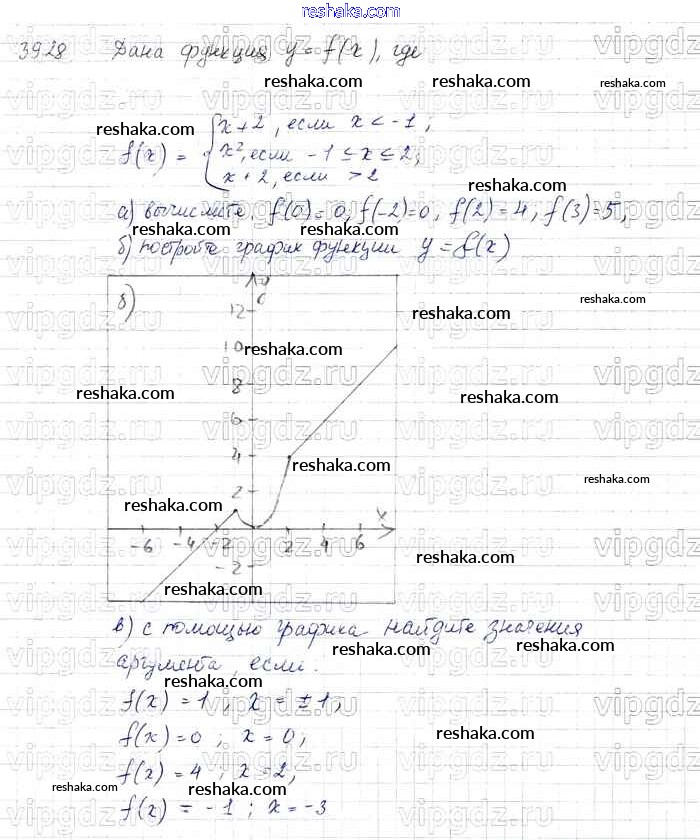 reshaka.com
39.28 Дана функция y = f(x), где
reshaka.com reshaka.com
x + 2, если x < -1;
reshaka.com
f(x) = x², если -1 ≤ x ≤ 2;
reshaka.com
x + 2, если > 2
а) вычислите, f(0) = 0, f(-2) = 0, f(2) = 4, f(3) = 5,
reshaka.com reshaka.com
б) постройте график функции y = f(x)
б) y
reshaka.com
12
reshaka.com
10
reshaka.com
8
reshaka.com reshaka.com
6
4
reshaka.com
reshaka.com
2
reshaka.com
x
-6 -4 -2 2 4 6
reshaka.com
-2
reshaka.com
в) с помощью графика найдите значения
reshaka.com reshaka.com
аргумента, если:
reshaka.com
f(x) = 1; x = ±1,
f(x) = 0; x = 0,
reshaka.com
f(x) = 4; x = 2,
reshaka.com reshaka.com
f(x) = -1; x = -3
vipgdz.ru